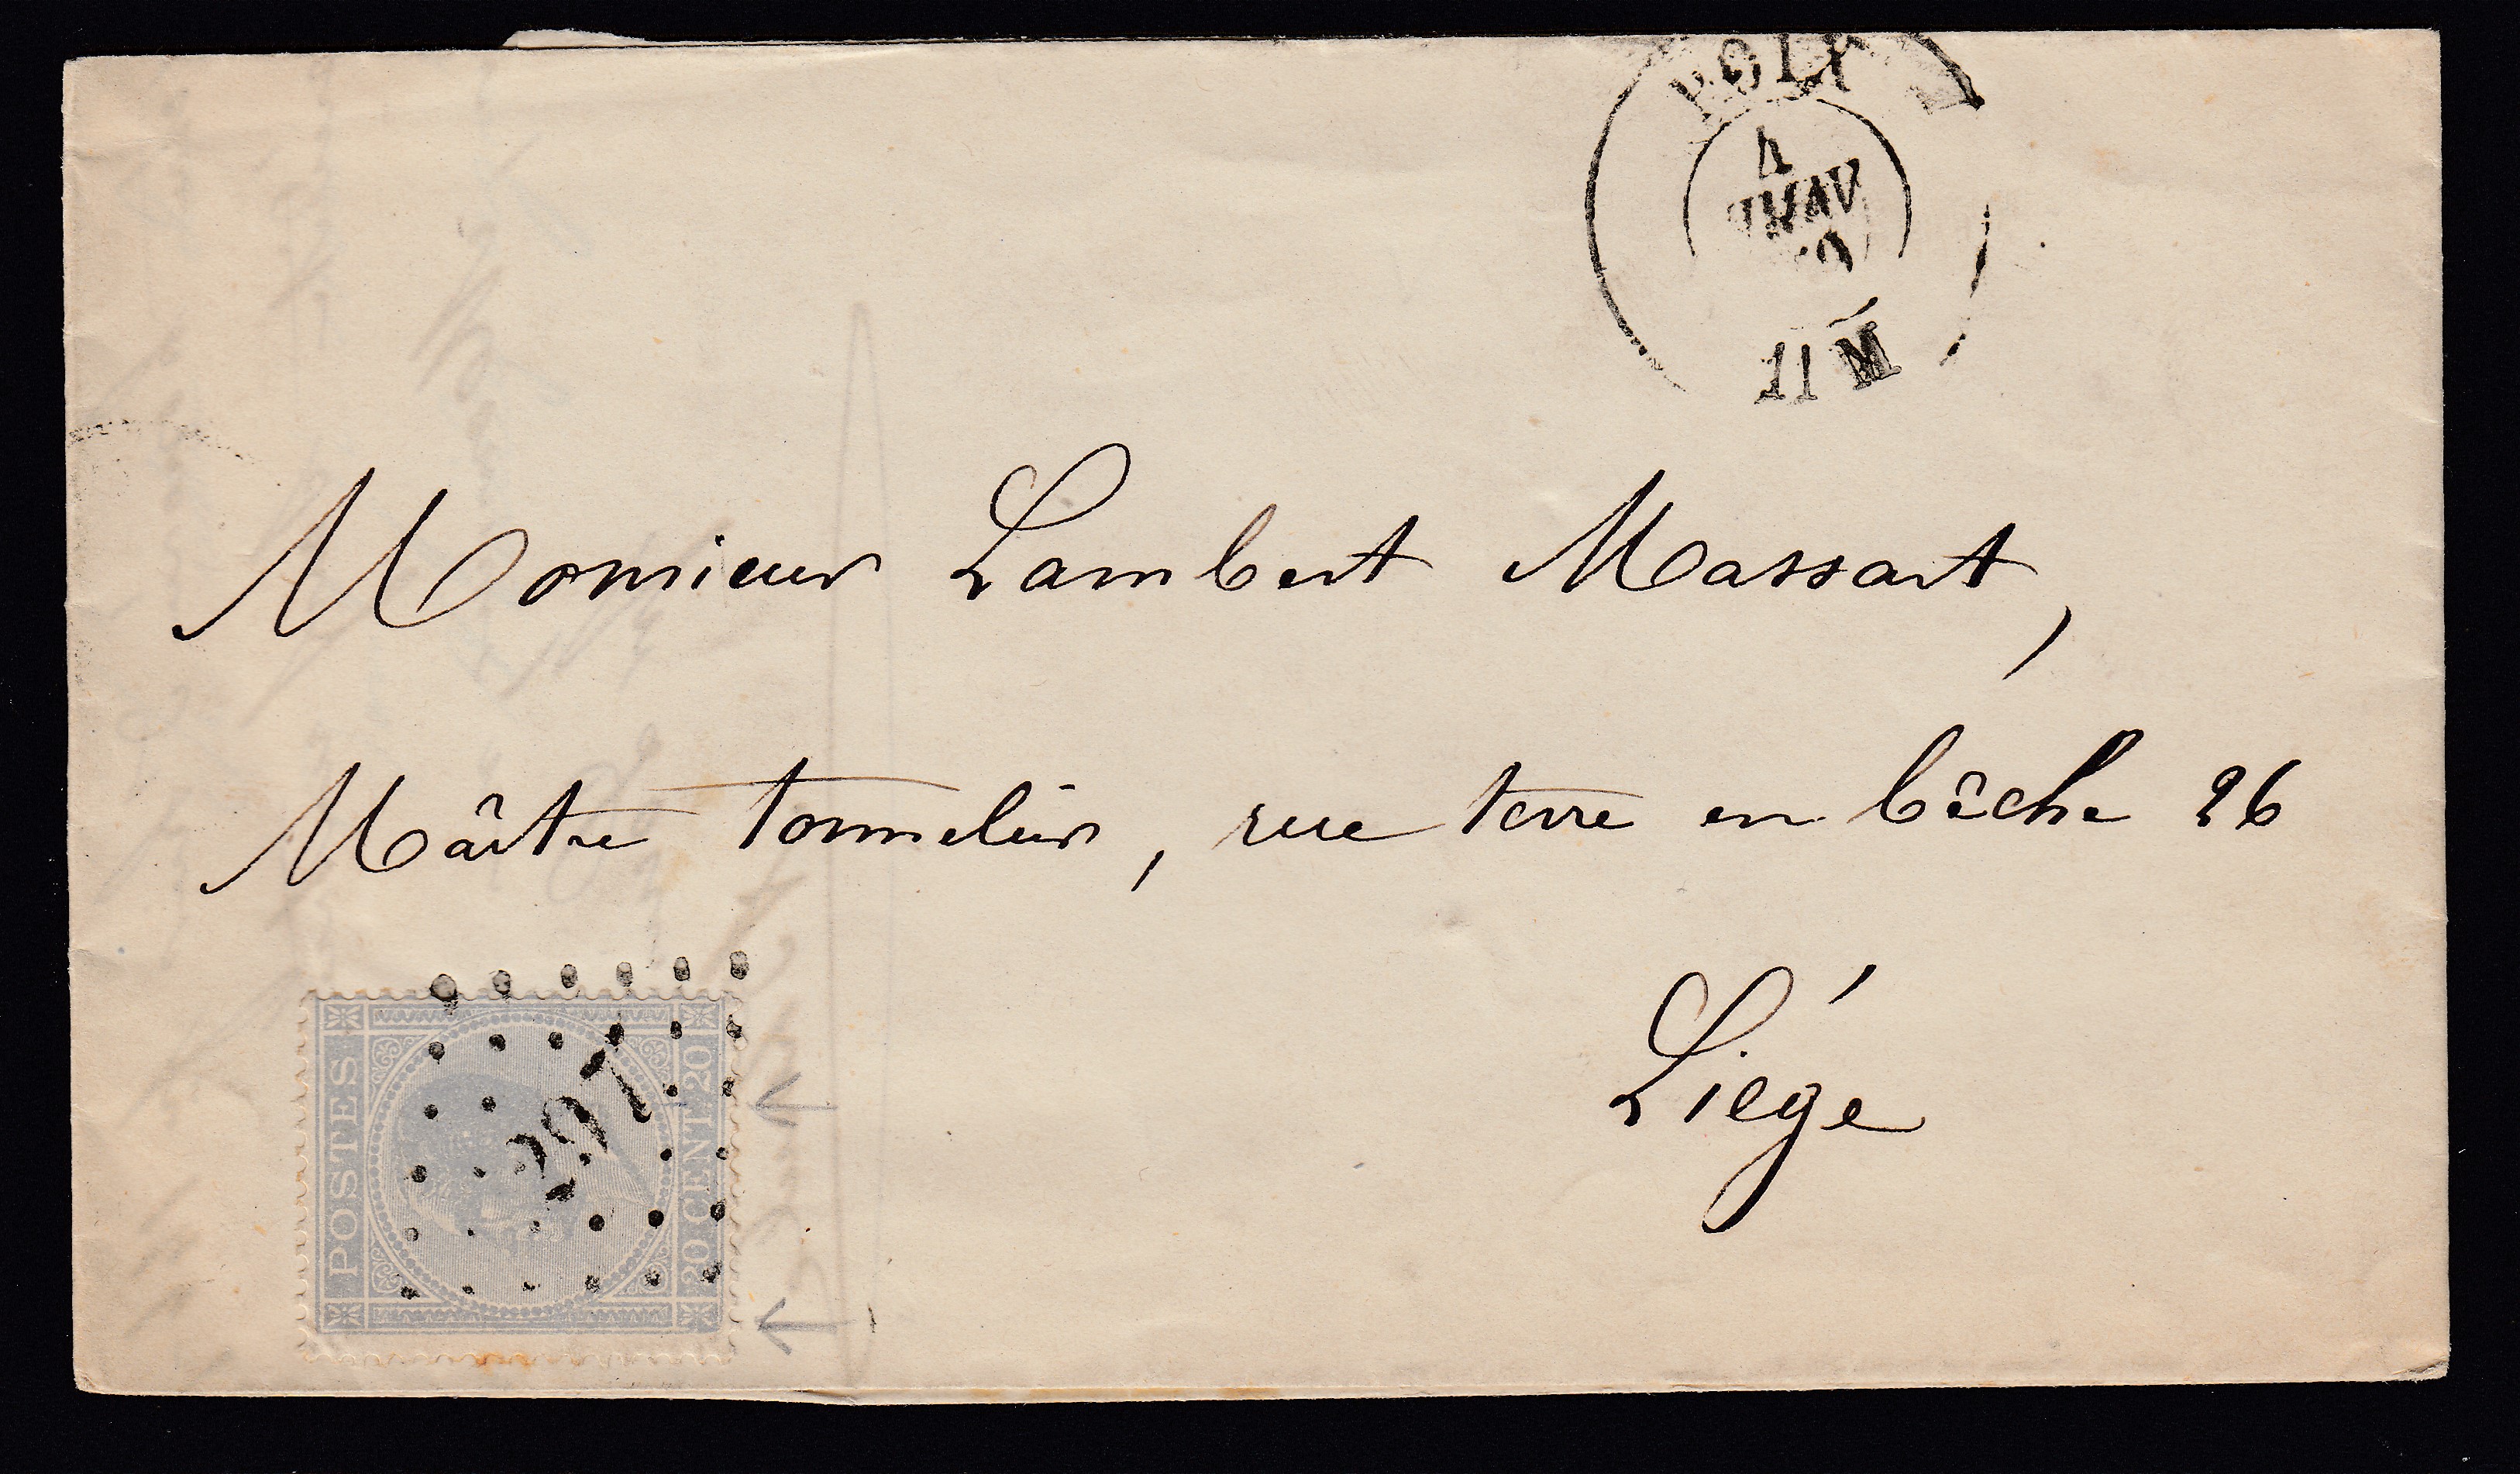 4
11 M
Monsieur Lambert Massart,
Maître tonnelier, rue terre en bêche 26
Liége
POSTES
297
20 CENT. 20